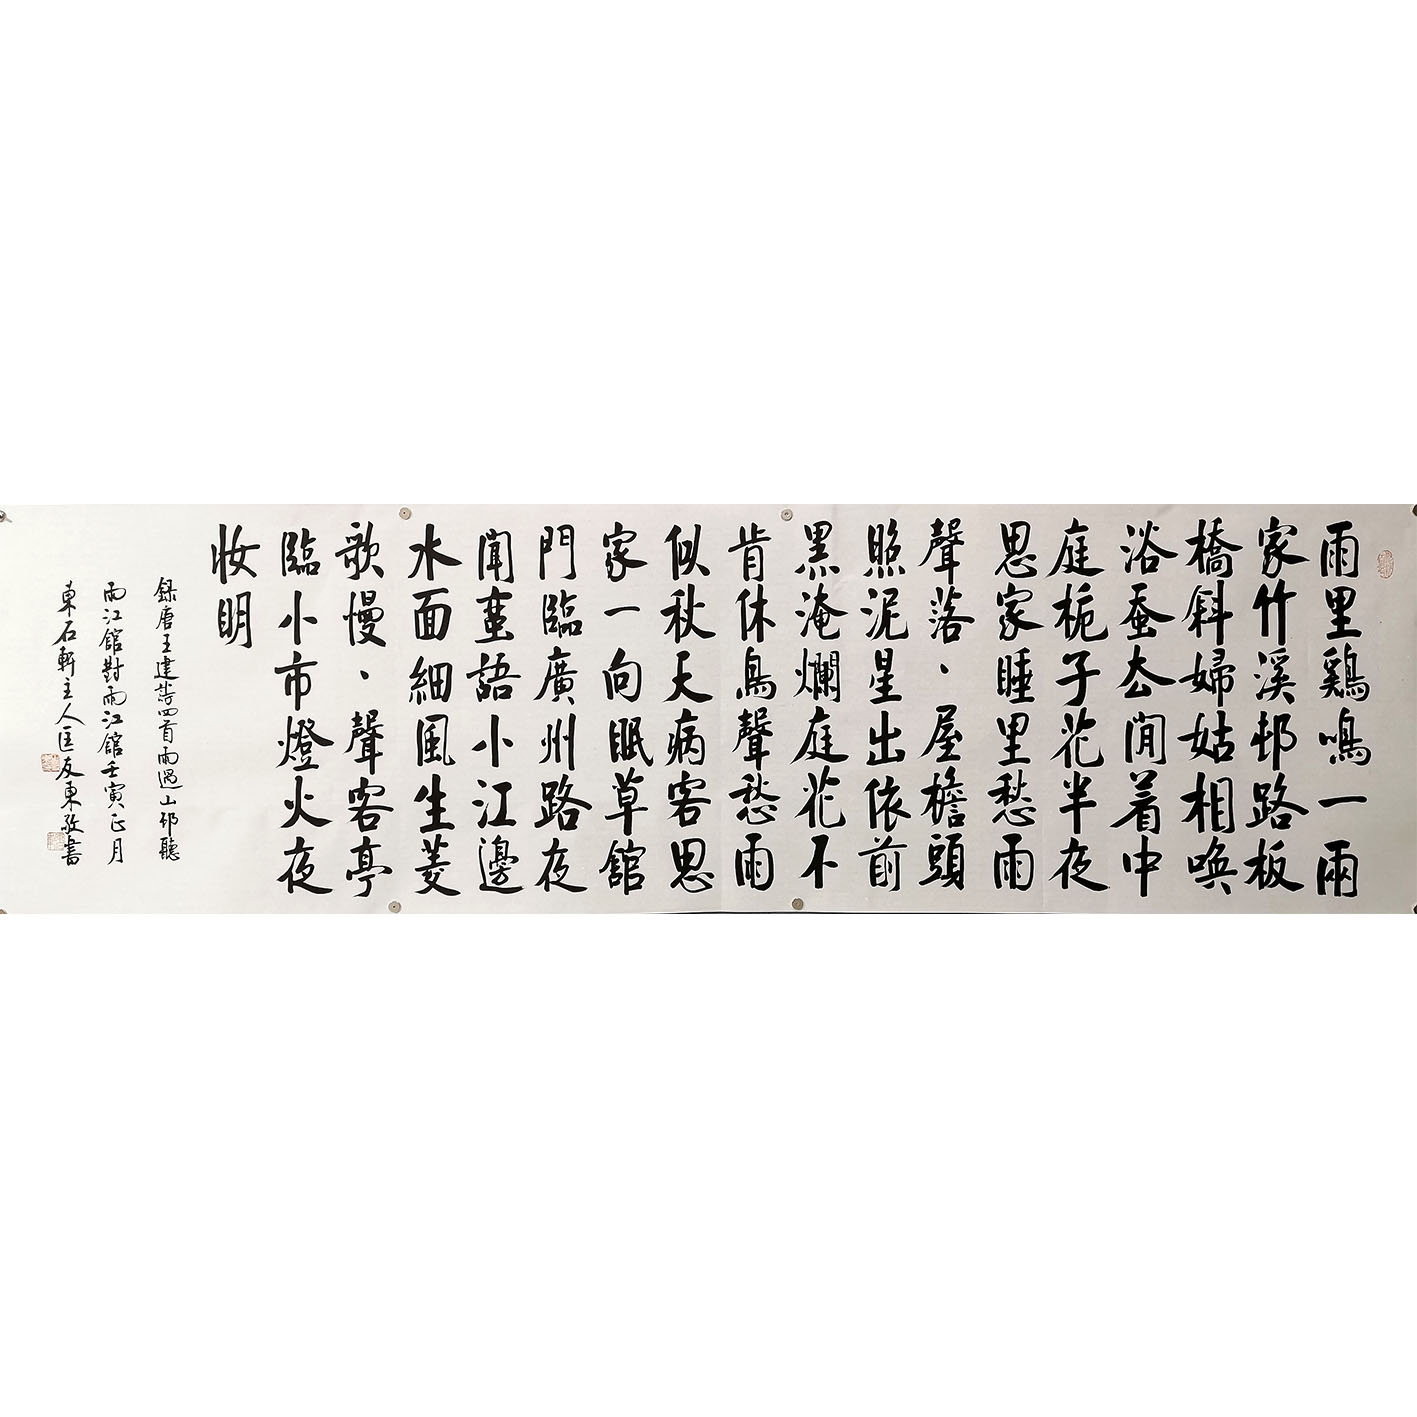 雨里鷄鳴一兩
家竹溪邨路板
橋斜婦姑相喚
浴蚕去閒着中
庭栀子花半夜
思家睡里愁雨
聲落、屋檐頭
照泥星出依前
黑淹爛庭花不
肯休鳥聲愁雨
似秋天病客思
家一向眠草舘
門臨廣州路夜
聞蛮語小江邊
水面細風生菱
歌慢、聲客亭
臨小市燈火夜
妝明
録唐王建詩四首雨過山邨聽
雨江舘對雨江舘壬寅正月
東石軒主人匡友東敬書